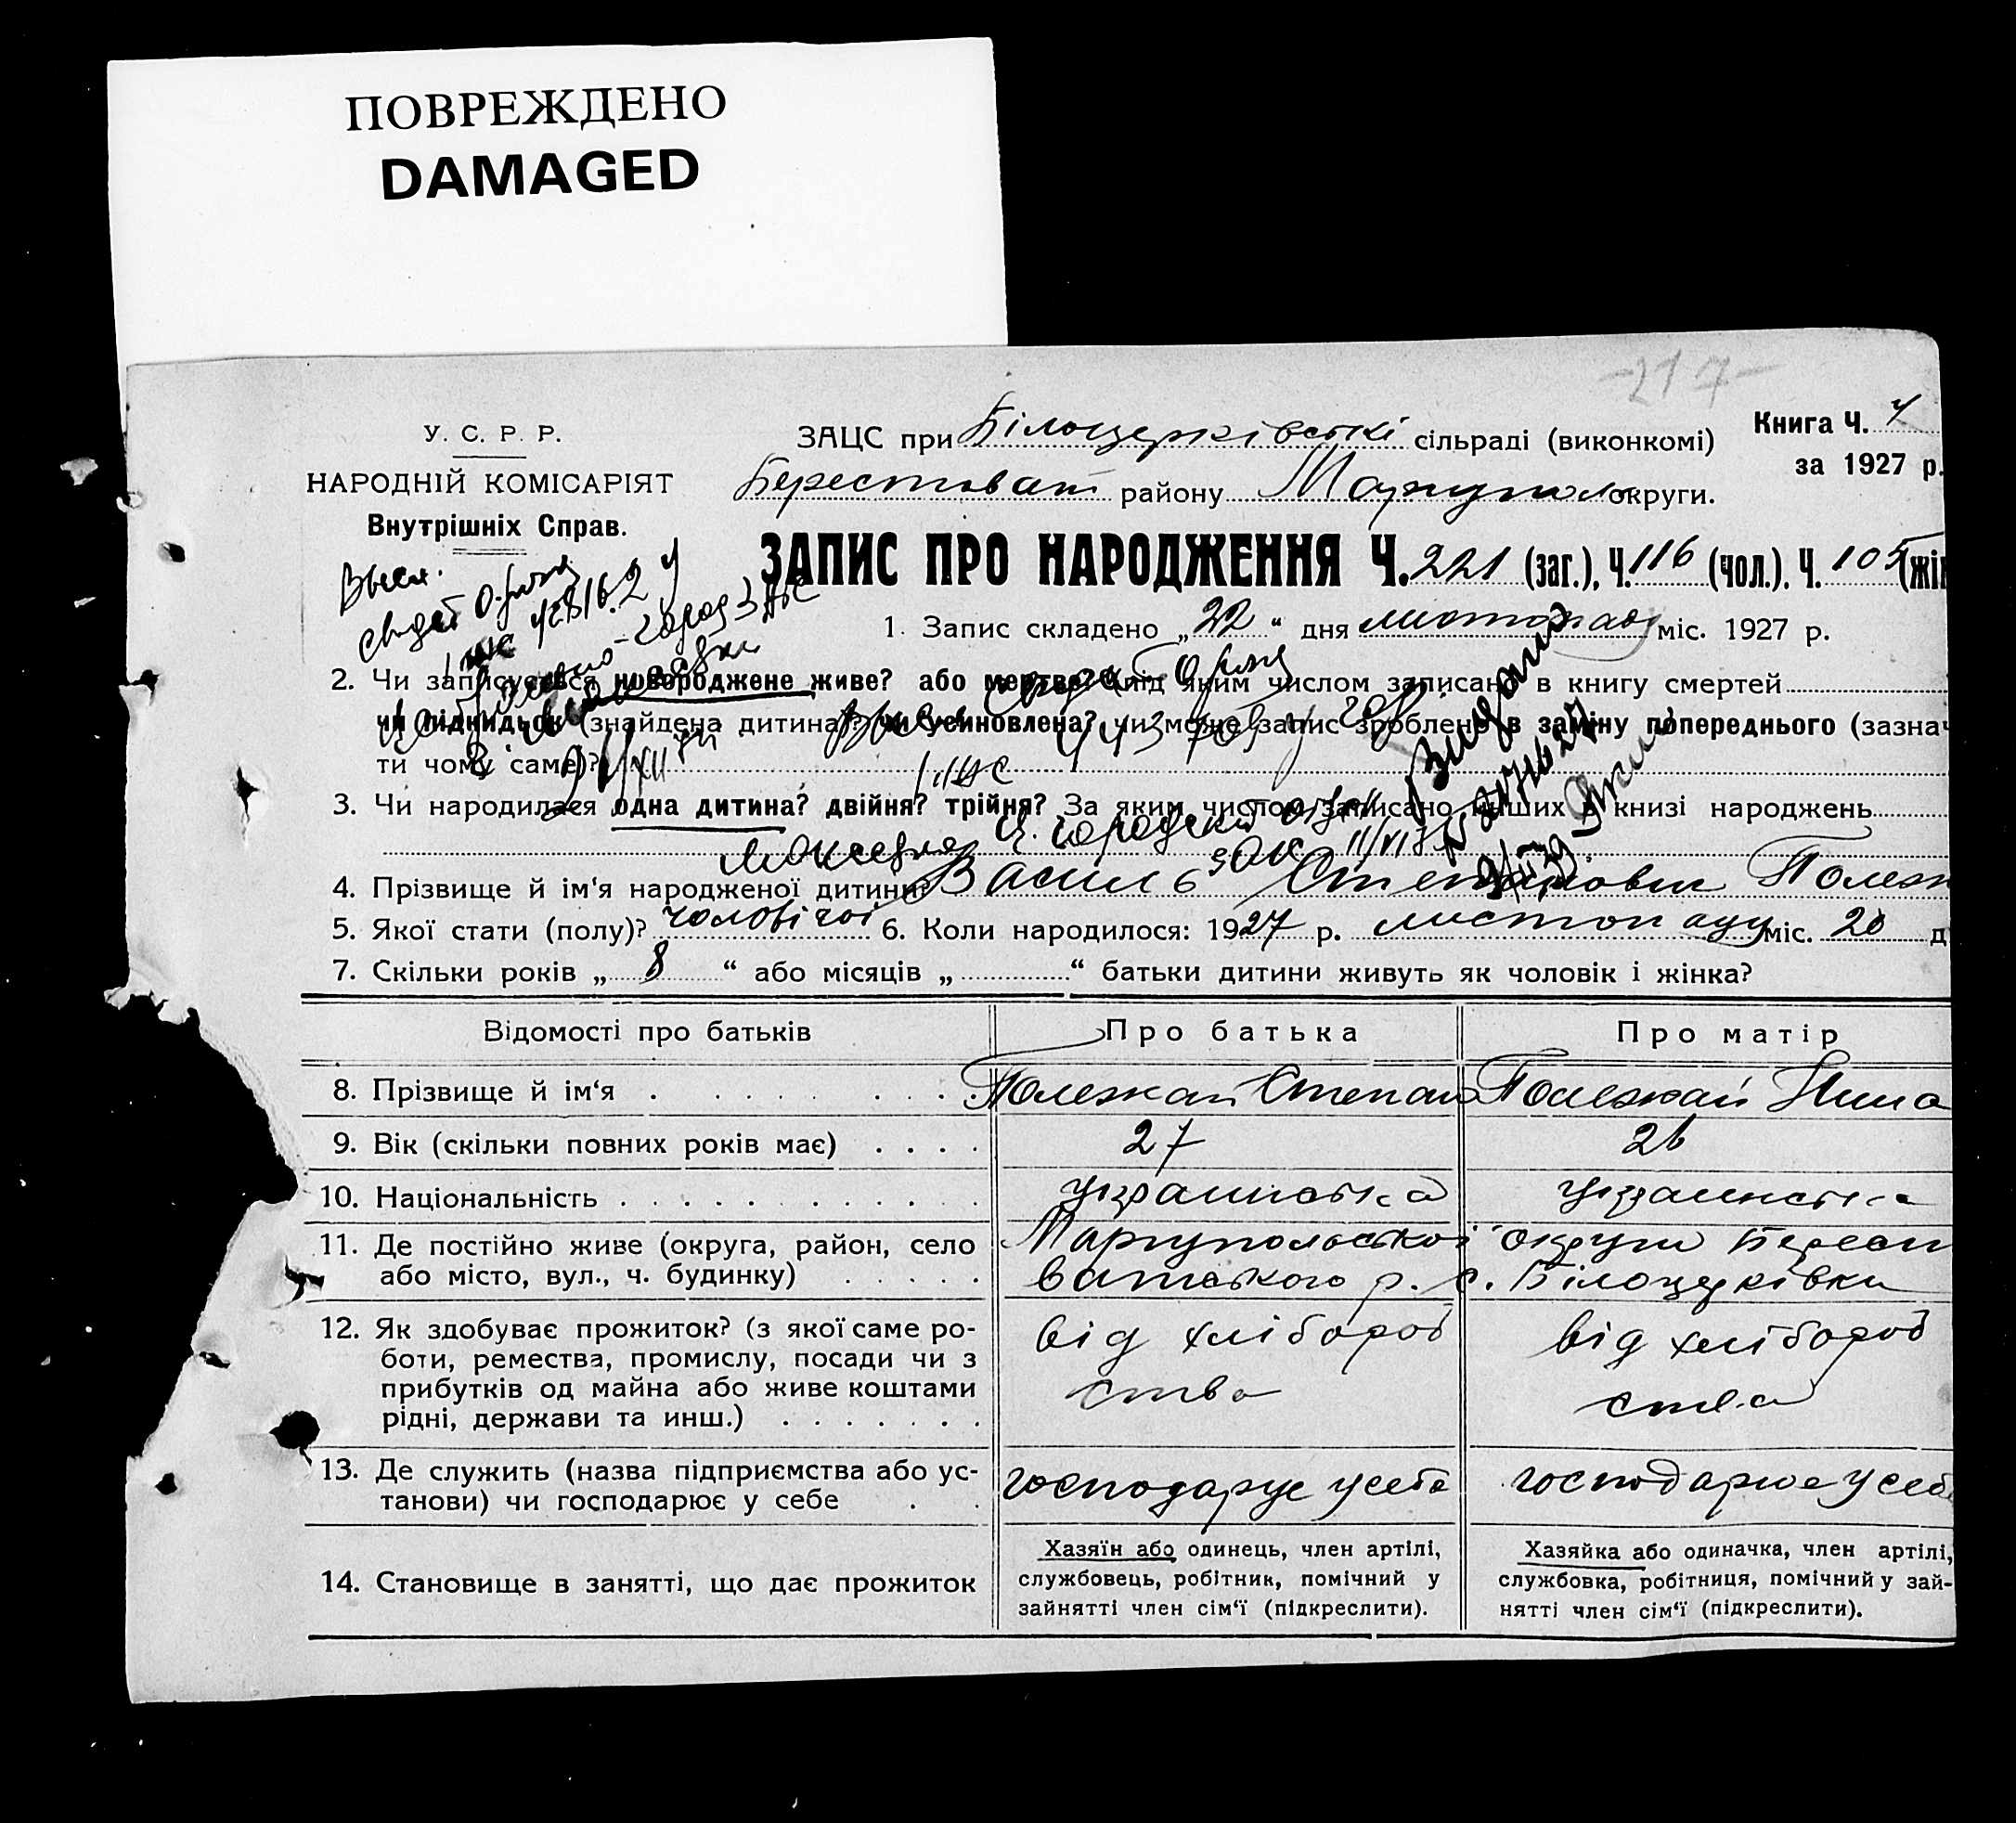 ПОВРЕЖДЕНО
DAMAGED
-217-
У. С. Р. Р.
НАРОДНІЙ КОМІСАРІЯТ
Внутрішніх Справ.
ЗАЦС при Білоцерківські сільраді (виконкомі)
Книга Ч.
за 1927 р.
Берестоват району Маріупол округи.
ЗАПИС ПРО НАРОДЖЕННЯ Ч. 221 (заг.), Ч. 116 (чол.). Ч. 105 (жін
1. Запис складено „22“ дня листопаду міс. 1927 р.
2. Чи записується новороджене живе? або мертве? під яким числом записано в книгу смертей
чи підкидьок (знайдена дитина)? чи усиновлена? чи може запис зроблено в заміну попереднього (зазнач
ти чому саме)?
3. Чи народилася одна дитина? двійня? трійня? За яким числом записано инших в книзі народжень
4. Прізвище й ім‘я народженої дитини? Василь Степанович Полеж
5. Якої стати (полу)? чоловічої 6. Коли народилося: 1927 р. листопаду міс. 20 д
7. Скільки років „8“ або місяців „ “ батьки дитини живуть як чоловік і жінка?
Відомості про батьків Про батька Про матір
8. Прізвище й ім‘я Полежай Степан Полежай Нина
9. Вік (скільки повних років має) 27 26
10. Національність украинська украинська
11. Де постійно живе (округа, район, село Маріупольської округи Берест
або місто, вул., ч. будинку) ватського р. с. Білоцерківки
12. Як здобуває прожиток? (з якої саме ро-
боти, ремества, промислу, посади чи з
прибутків од майна або живе коштами
рідні, держави та инш.)
від хлібороб
ства
від хлібороб
ства
13. Де служить (назва підприємства або ус-
танови) чи господарює у себе
господарує у себе
господарює у себе
14. Становище в занятті, що дає прожиток
Хазяїн або одинець, член артілі,
службовець, робітник, помічний у
зайнятті член сім‘ї (підкреслити).
Хазяйка або одиначка, член артілі,
службовка, робітниця, помічний у зай-
нятті член сім‘ї (підкреслити).